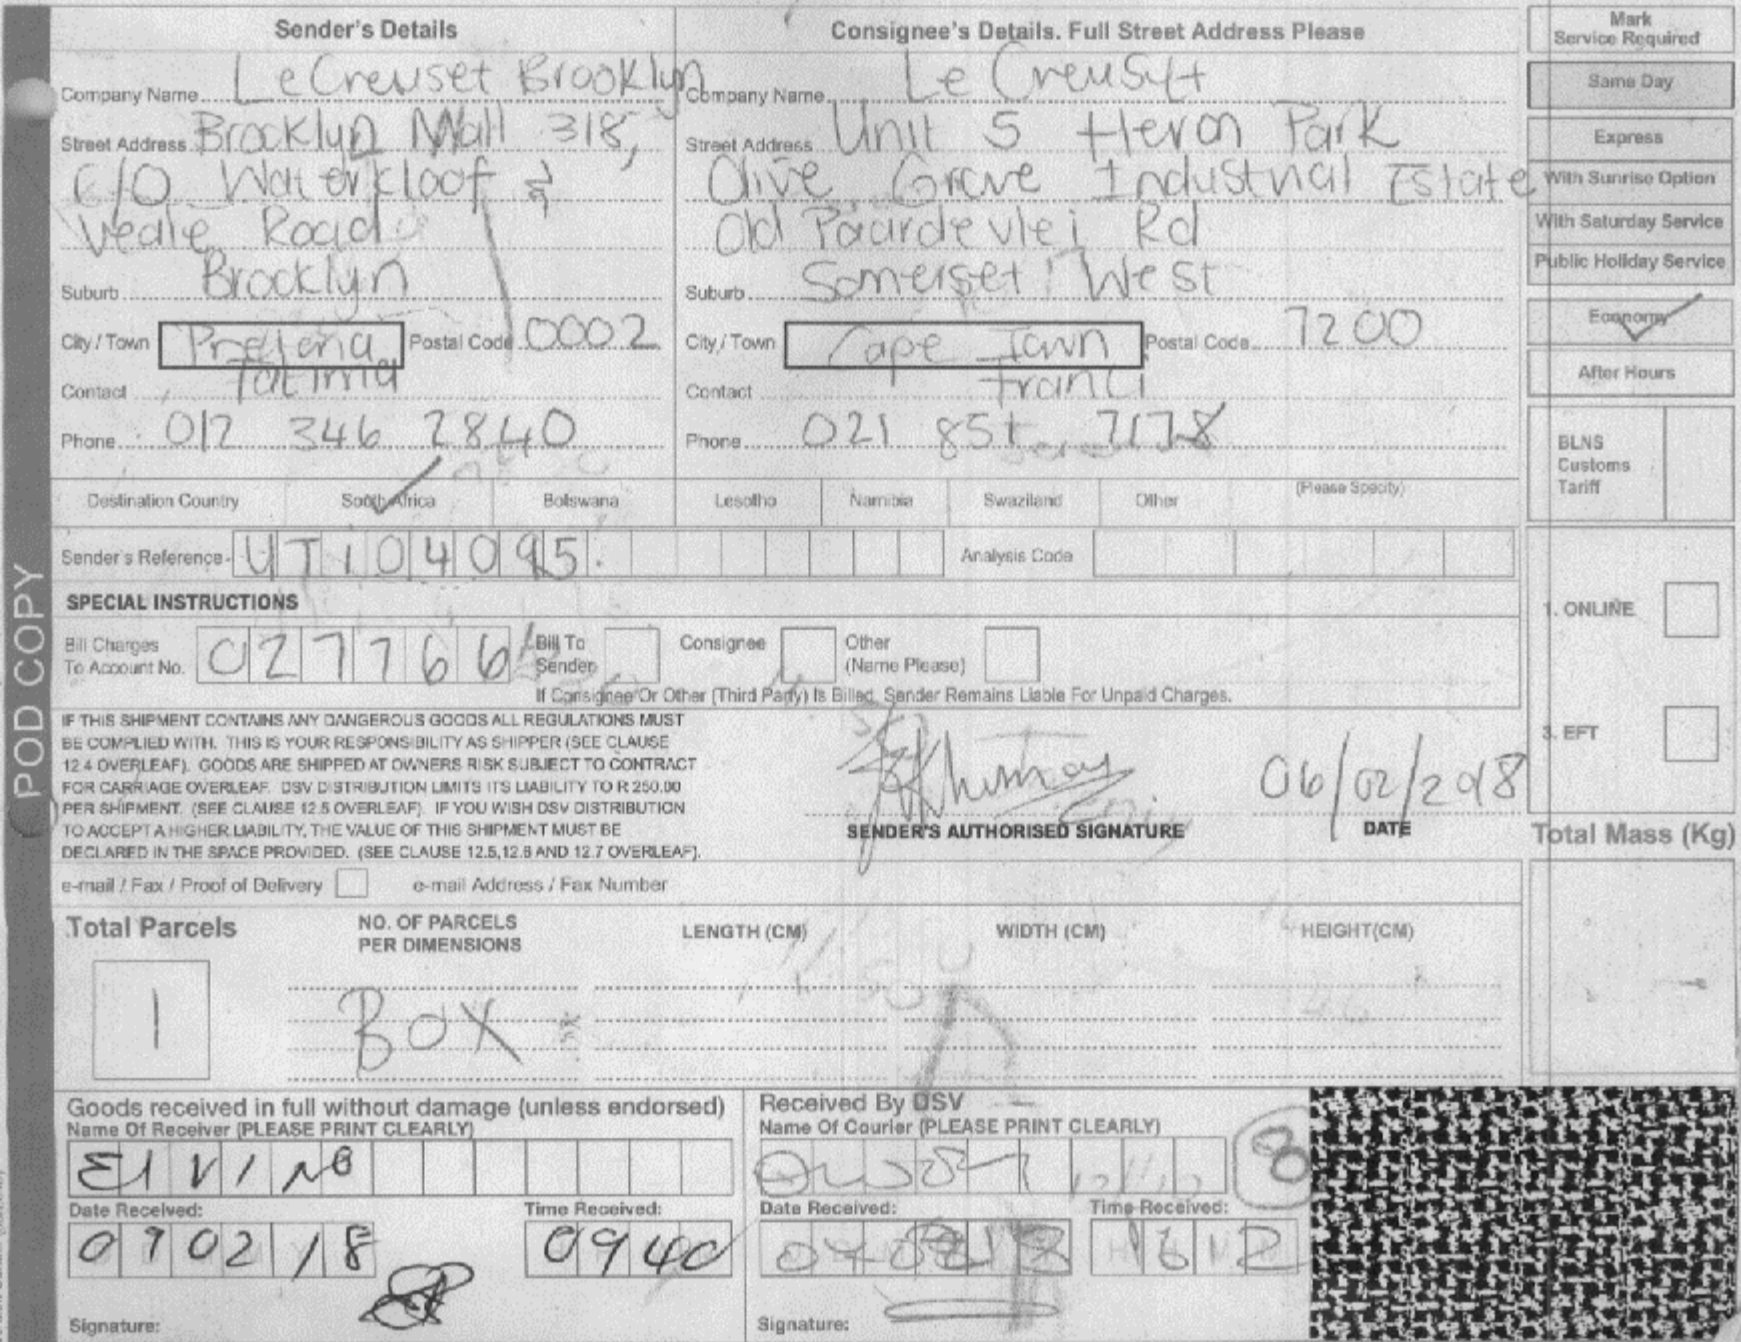 Sender's Details
Company Name Le Creuset Brooklyn
Street Address Brooklyn Mall 318,
C/O Waterkloof &
Veale Road
Suburb Brooklyn
City / Town Pretoria Postal Code 0002
Contact Fatima
Phone 012 346 2840
Consignee's Details. Full Street Address Please
Company Name Le
Street Address Unit 5 Heron Park
Olive Grove Industrial Estate
Old Paardevlei Rd
Suburb Somerset West
City / Town Cape Town Postal Code 7200
Contact
Phone 021
Mark
Service Required
Same Day
Express
With Sunrise Option
With Saturday Service
Public Holiday Service
Economy
After Hours
BLNS
Customs
Tariff
Destination Country South Africa Botswana Lesotho Namibia Swaziland Other (Please Specify)
Sender's Reference UTI04095 Analysis Code
SPECIAL INSTRUCTIONS
Bill Charges
To Account No. 027766 Bill To
Sender Consignee Other
(Name Please)
If Consignee Or Other (Third Party) Is Billed, Sender Remains Liable For Unpaid Charges.
1. ONLINE
3. EFT
IF THIS SHIPMENT CONTAINS ANY DANGEROUS GOODS ALL REGULATIONS MUST
BE COMPLIED WITH. THIS IS YOUR RESPONSIBILITY AS SHIPPER (SEE CLAUSE
12.4 OVERLEAF). GOODS ARE SHIPPED AT OWNERS RISK SUBJECT TO CONTRACT
FOR CARRIAGE OVERLEAF. DSV DISTRIBUTION LIMITS ITS LIABILITY TO R 250.00
PER SHIPMENT. (SEE CLAUSE 12.5 OVERLEAF). IF YOU WISH DSV DISTRIBUTION
TO ACCEPT A HIGHER LIABILITY, THE VALUE OF THIS SHIPMENT MUST BE
DECLARED IN THE SPACE PROVIDED. (SEE CLAUSE 12.5,12.6 AND 12.7 OVERLEAF).
SENDER'S AUTHORISED SIGNATURE
06/02/2018
DATE
Total Mass (Kg)
e-mail / Fax / Proof of Delivery e-mail Address / Fax Number
Total Parcels NO. OF PARCELS
PER DIMENSIONS LENGTH (CM) WIDTH (CM) HEIGHT(CM)
1 BOX
Goods received in full without damage (unless endorsed)
Name Of Receiver (PLEASE PRINT CLEARLY)
ElVINO
Date Received: Time Received:
0902/18 0940
Signature:
Received By DSV
Name Of Courier (PLEASE PRINT CLEARLY)
8
Date Received: Time Received:
1612
Signature:
POD COPY